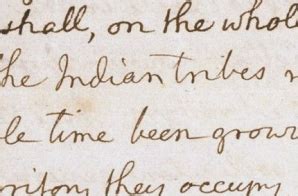 shall, on the whol
the Indian tribes r
le time been grow
ritory they occupy